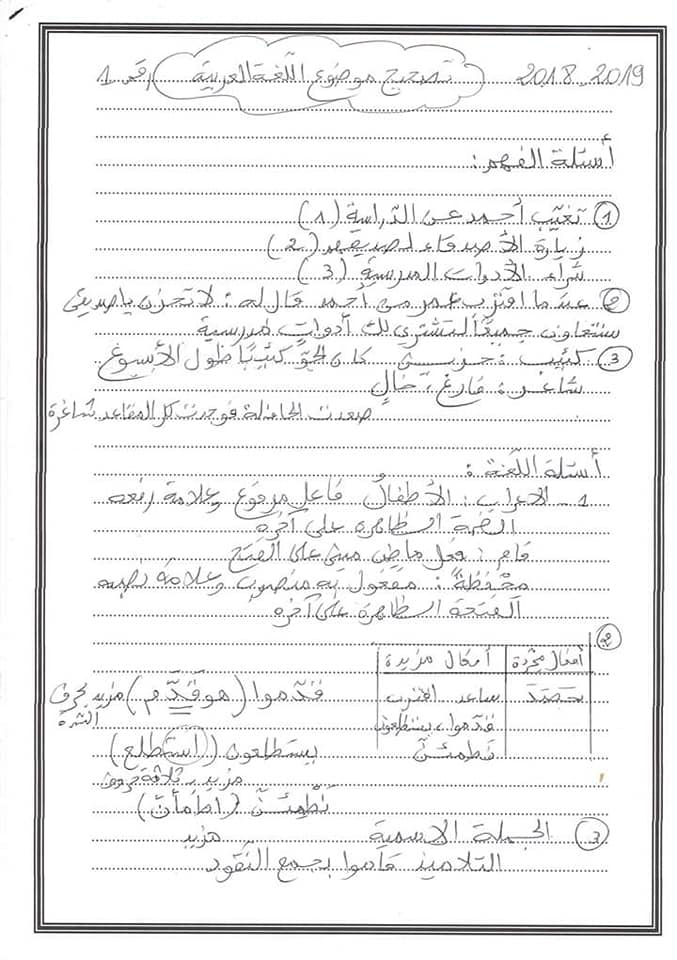 تصحيح موضوع اللّغة العربية رقم 1 2018_2019
أسئلة الفهم :
① تغيّب أحمد عن الدّراسة (1)
زيارة الأصدقاء لصديقهم (2)
شراء الأدوات المدرسية (3)
② عندما اقترب عمر من أحمد قال له : لا تحزن يا صديقي
سنتعاون جميعًا لنشتري لك أدوات مدرسية
③ كئيب : حزين كان الجوّ كئيبًا طول الأسبوع
شاغر : فارغ ، خالٍ
صعدت الحافلة فوجدت كل المقاعد شاغرة
أسئلة اللّغة :
1 - الاعراب : الأطفالُ فاعل مرفوع وعلامة رفعه
الضمة الظاهرة على آخره
قام : فعل ماض مبني على الفتح
محفظةً : مفعول به منصوب وعلامة نصبه
الفتحة الظاهرة على آخره
②
أفعال مجرّدة أفعال مزيدة
حَصَدَ ساعد اقترب قدّموا (هو قدّم) مزيد بحرف
قدّموا، يستطلعون الشدة
نطمئنّ يستطلعون (استطلع)
مزيد بثلاثة حروف
نطمئنّ (اطمأنّ)
③ الجملة الاسمية مزيد
التلاميذ قاموا بجمع النّقود